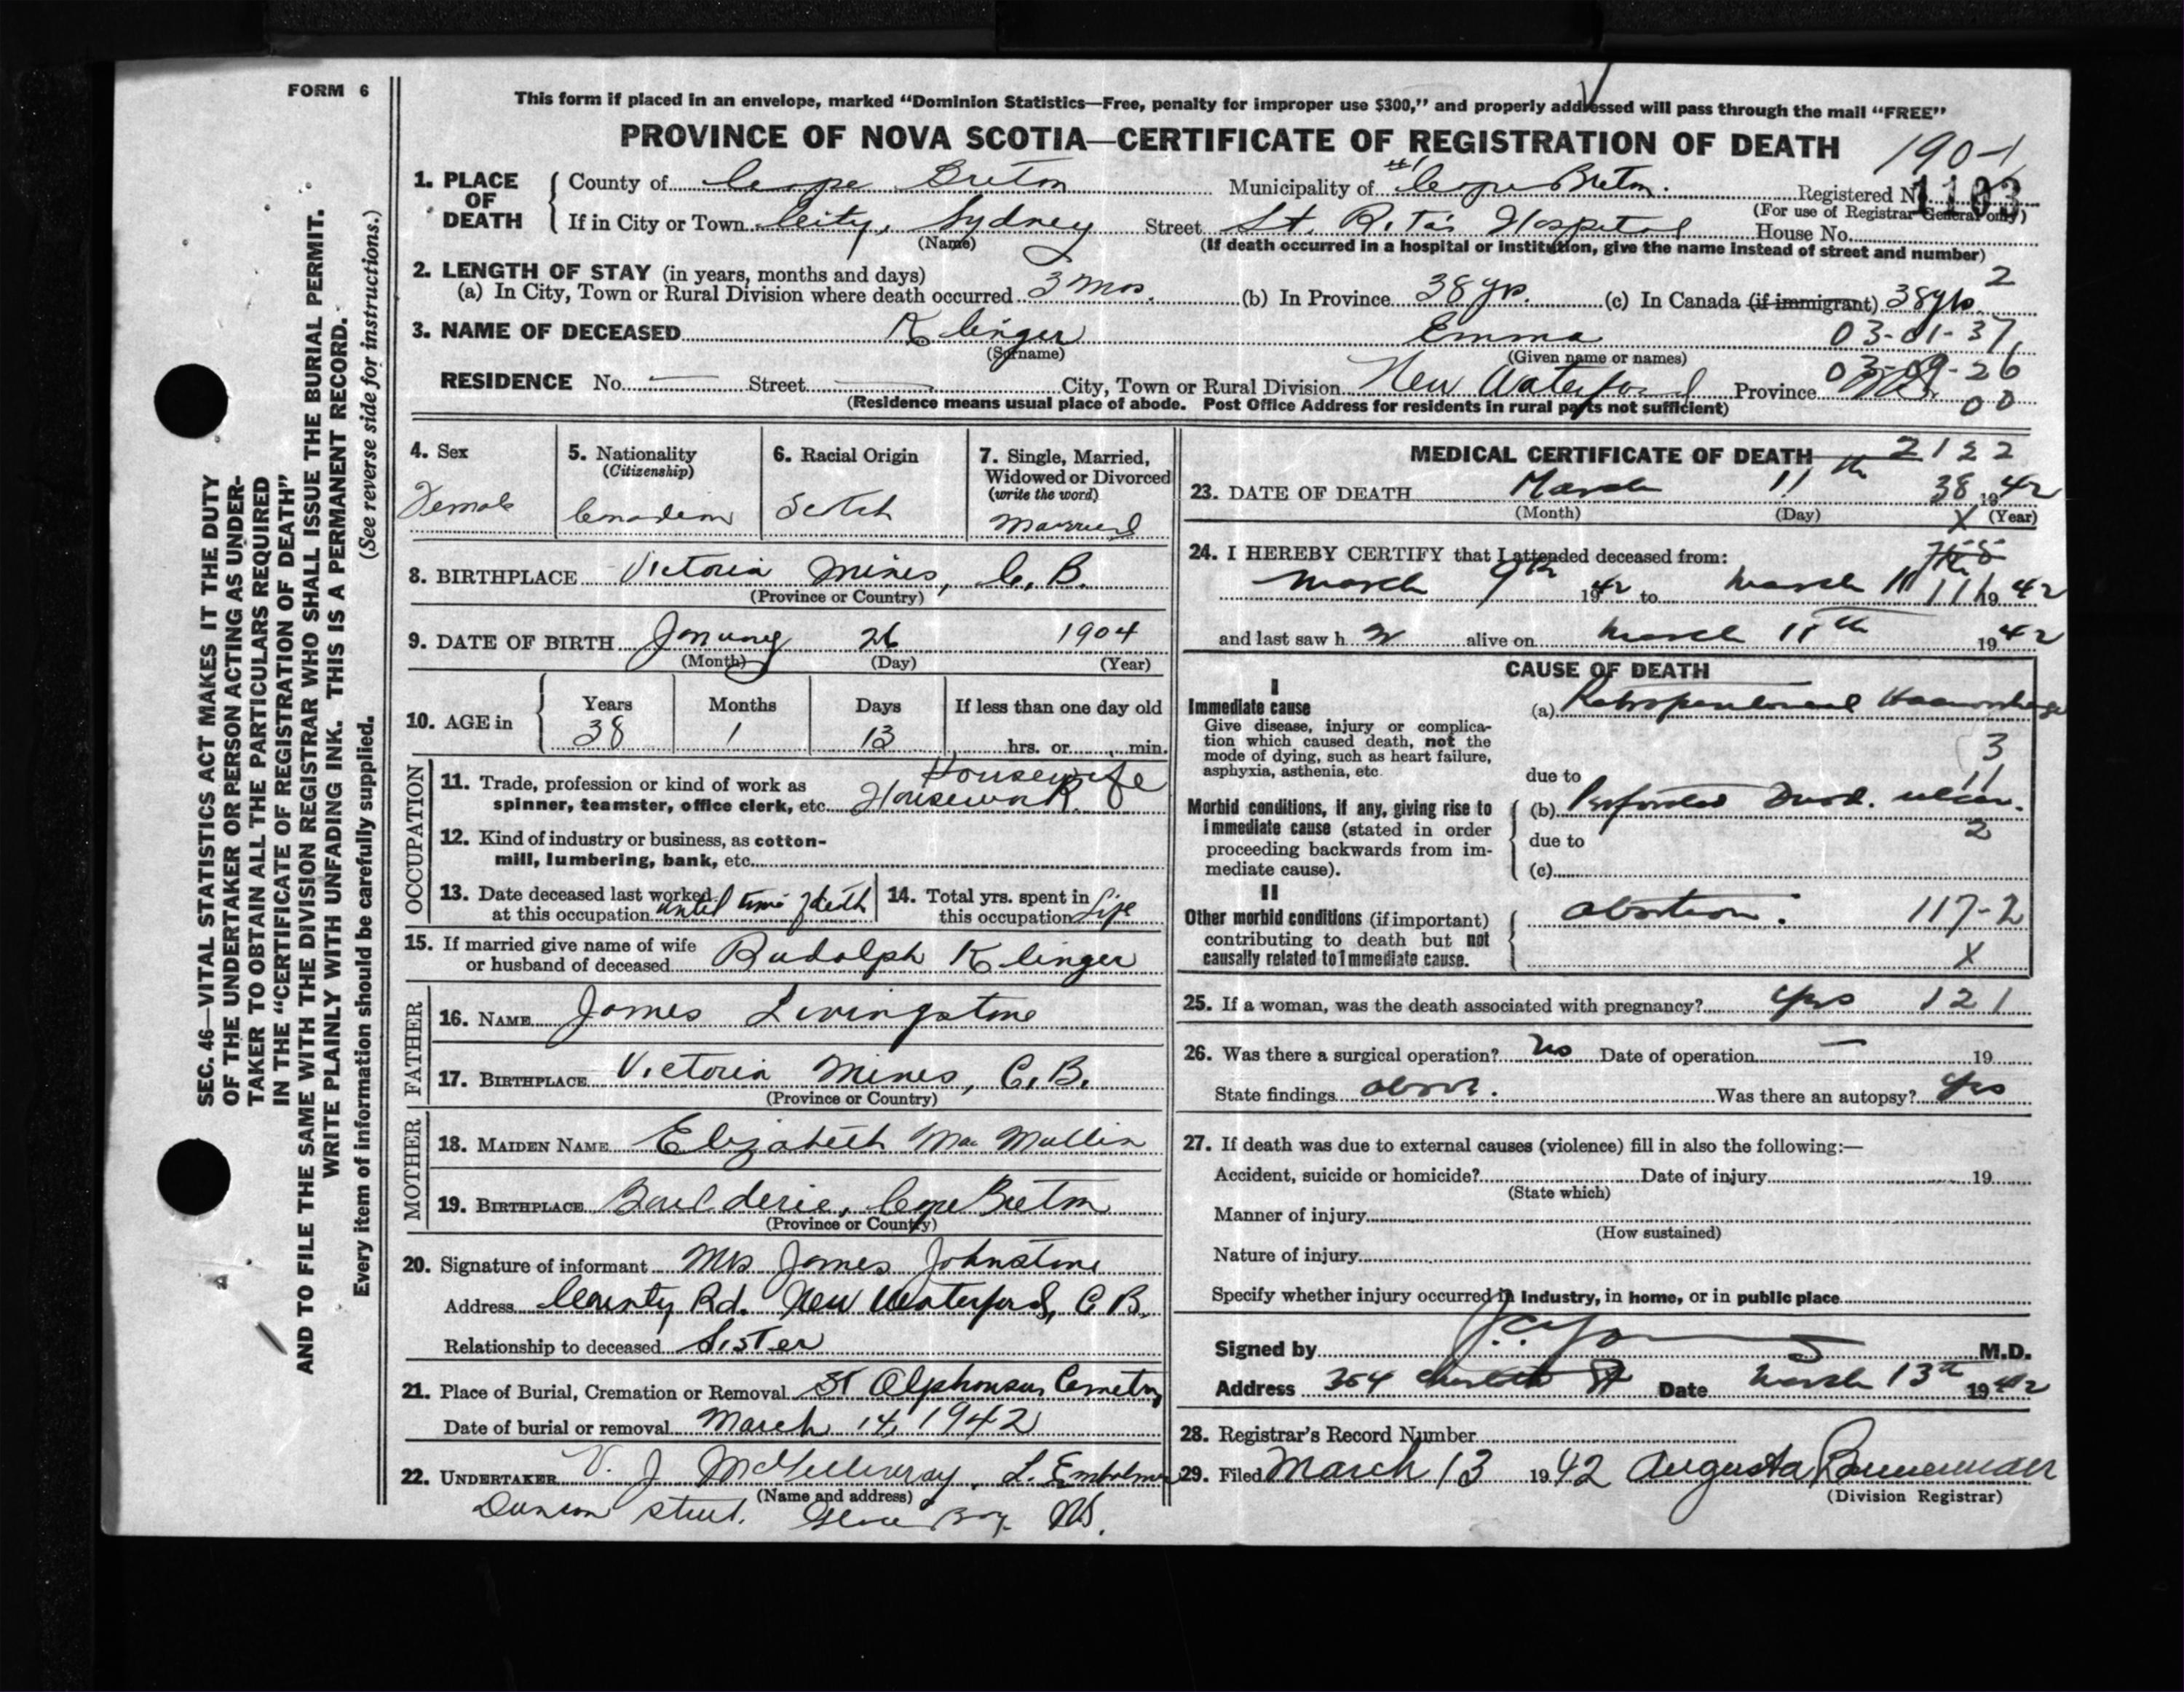 FORM 6
This form if placed in an envelope, marked “Dominion Statistics—Free, penalty for improper use $300,” and properly addressed will pass through the mail “FREE”
PROVINCE OF NOVA SCOTIA—CERTIFICATE OF REGISTRATION OF DEATH
190-1
1. PLACE OF DEATH
County of Cape Breton Municipality of Cape Breton. Registered No. 1103
(For use of Registrar General only)
If in City or Town City, Sydney Street St. Rita's Hospital House No.
(Name) (If death occurred in a hospital or institution, give the name instead of street and number)
2. LENGTH OF STAY (in years, months and days)
2
(a) In City, Town or Rural Division where death occurred 3 mos. (b) In Province 38 yrs. (c) In Canada (if immigrant) 38 yrs.
3. NAME OF DECEASED Klinger Emma 03-01-37
(Surname) (Given name or names)
03-09-26
RESIDENCE No. — Street — City, Town or Rural Division New Waterford Province N.S.
(Residence means usual place of abode. Post Office Address for residents in rural parts not sufficient)
00
4. Sex
Female
5. Nationality
(Citizenship)
Canadian
6. Racial Origin
Scotch
7. Single, Married,
Widowed or Divorced
(write the word)
Married
8. BIRTHPLACE Victoria Mines, C. B.
(Province or Country)
9. DATE OF BIRTH January 26 1904
(Month) (Day) (Year)
10. AGE in
Years Months Days If less than one day old
38 1 13 hrs. or min.
OCCUPATION
Housewife
11. Trade, profession or kind of work as
spinner, teamster, office clerk, etc. Housework
12. Kind of industry or business, as cotton-
mill, lumbering, bank, etc.
13. Date deceased last worked
at this occupation until time of death
14. Total yrs. spent in
this occupation Life
15. If married give name of wife
or husband of deceased Rudolph Klinger
FATHER
16. NAME James Livingstone
17. BIRTHPLACE Victoria Mines, C. B.
(Province or Country)
MOTHER
18. MAIDEN NAME Elizabeth MacMullin
19. BIRTHPLACE Cape Breton
(Province or Country)
20. Signature of informant Mrs James Johnstone
Address County Rd. New Waterford, C B.
Relationship to deceased Sister
21. Place of Burial, Cremation or Removal St Alphonsus Cemetry
Date of burial or removal March 14, 1942
22. UNDERTAKER V. J. McGillivray, L. Embalmer
(Name and address)
Duncan Street. Glace Bay. NS.
MEDICAL CERTIFICATE OF DEATH 2122
23. DATE OF DEATH March 11th 38 1942
(Month) (Day) X (Year)
24. I HEREBY CERTIFY that I attended deceased from:
March 9th 1942 to March 11 1942
and last saw her alive on March 11th 1942
CAUSE OF DEATH
I
Immediate cause
Give disease, injury or complica-
tion which caused death, not the
mode of dying, such as heart failure,
asphyxia, asthenia, etc.
(a) Retroperitoneal Haemorrhage
3
due to 11
Morbid conditions, if any, giving rise to
immediate cause (stated in order
proceeding backwards from im-
mediate cause).
(b) Perforated Duod. ulcer.
due to 2
(c)
II
Other morbid conditions (if important)
contributing to death but not
causally related to immediate cause.
abortion. 117-2
X
25. If a woman, was the death associated with pregnancy? yes 121
26. Was there a surgical operation? No Date of operation — 19
State findings above. Was there an autopsy? Yes
27. If death was due to external causes (violence) fill in also the following:—
Accident, suicide or homicide? Date of injury 19
(State which)
Manner of injury
(How sustained)
Nature of injury
Specify whether injury occurred in Industry, in home, or in public place
Signed by M.D.
Address 354 Charlotte St Date March 13th 1942
28. Registrar's Record Number
29. Filed March 13 1942 Augusta
(Division Registrar)
SEC. 46—VITAL STATISTICS ACT MAKES IT THE DUTY
OF THE UNDERTAKER OR PERSON ACTING AS UNDER-
TAKER TO OBTAIN ALL THE PARTICULARS REQUIRED
IN THE “CERTIFICATE OF REGISTRATION OF DEATH”
AND TO FILE THE SAME WITH THE DIVISION REGISTRAR WHO SHALL ISSUE THE BURIAL PERMIT.
WRITE PLAINLY WITH UNFADING INK. THIS IS A PERMANENT RECORD.
Every item of information should be carefully supplied. (See reverse side for instructions.)